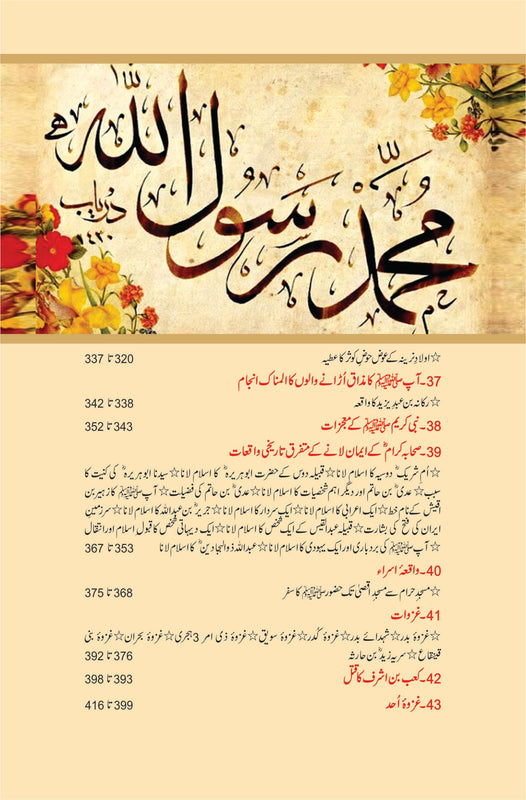 محمد رسول الله
١٤٣٠
☆ اولادِ نرینہ کے عوض حوضِ کوثر کا عطیہ 320 تا 337
37۔ آپ ﷺ کا مذاق اُڑانے والوں کا المناک انجام
☆ رکانہ بن عبد یزید کا واقعہ 338 تا 342
38۔ نبی کریم ﷺ کے معجزات 343 تا 352
39۔ صحابہ کرامؓ کے ایمان لانے کے متفرق تاریخی واقعات
☆ اُم شریکؓ دوسیہ کا اسلام لانا ☆ قبیلہ دوس کے حضرت ابوہریرہؓ کا اسلام لانا ☆ سیدنا ابوہریرہؓ کی کنیت کا
سبب ☆ عدیؓ بن حاتم اور دیگر اہم شخصیات کا اسلام لانا ☆ عدیؓ بن حاتم کی فضیلت ☆ آپ ﷺ کا زہیر بن
اقیش کے نام خط ☆ ایک اعرابی کا اسلام لانا ☆ ایک سردار کا اسلام لانا ☆ جریرؓ بن عبداللہ کا اسلام لانا ☆ سرزمینِ
ایران کی فتح کی بشارت ☆ قبیلہ عبدالقیس کے ایک شخص کا اسلام لانا ☆ ایک دیہاتی شخص کا قبول اسلام اور انتقال
☆ آپ ﷺ کی بردباری اور ایک یہودی کا اسلام لانا ☆ عبداللہ ذوالبجادینؓ کا اسلام لانا 353 تا 367
40۔ واقعۂ اسراء
☆ مسجدِ حرام سے مسجدِ اقصٰی تک حضور ﷺ کا سفر 368 تا 375
41۔ غزوات
☆ غزوۂ بدر ☆ شہدائے بدر ☆ غزوۂ کُدر ☆ غزوۂ سویق ☆ غزوۂ ذی امر 3 ہجری ☆ غزوۂ بحران ☆ غزوۂ بنی
قینقاع ☆ سریہ زیدؓ بن حارثہ 376 تا 392
42۔ کعب بن اشرف کا قتل 393 تا 398
43۔ غزوۂ اُحد 399 تا 416